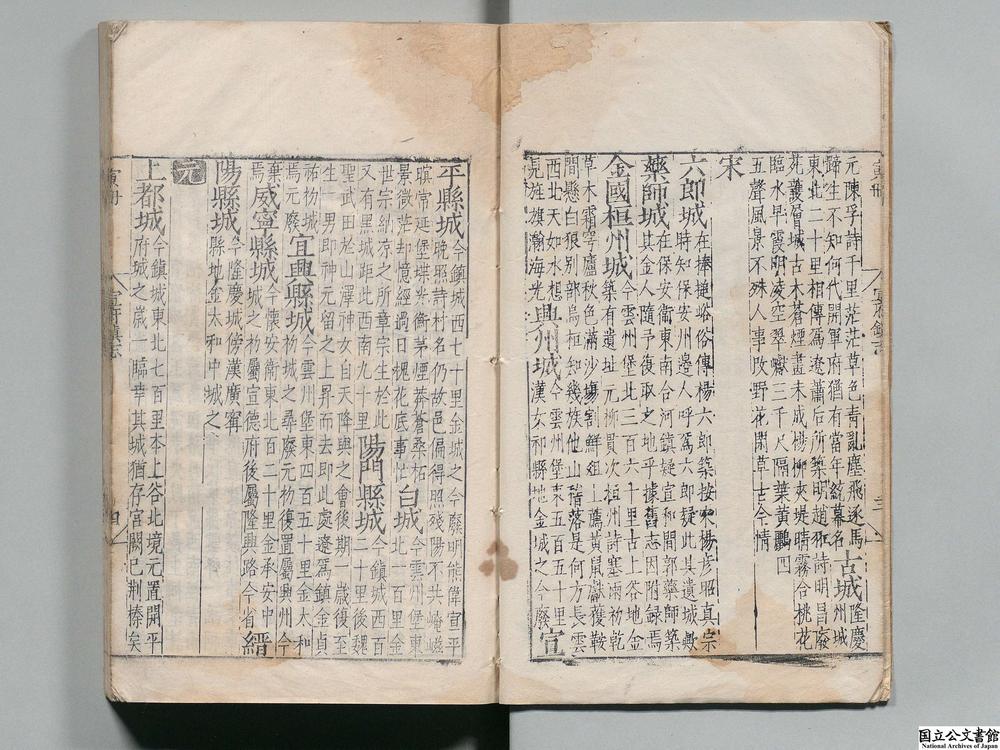 元陳孚詩千里茫茫草色青亂塵飛逐馬
蹄生不知何代開軍府猶有當年
幕名
古城
隆慶
州城
東北二十里相傳為遼蕭后所築明趙
詩明昌廢
苑
層城古木蒼煙畫未成楊柳夾堤晴霧合桃花
臨水早霞明凌空翠巘三千尺隔葉黃鸝四
五聲風景不殊人事改野花閑草古今情
宋
六郎城
在棒搥峪俗傳楊六郎築按宋楊
昭真宗
時知保安州邊人呼為六郎疑此其遺城歟
藥師城
在保安衛東南合河鎮疑宣和間郭藥師築
其金人隨予復取之地乎據舊志因附錄焉
金國桓州城
今雲州堡北三百六十里古上谷地金
築有遺址元柳貫次桓州詩塞雨初乾
草木霜穹廬秋色滿沙塲割鮮俎上薦黃鼠獻獲鞍
間懸白狼別部烏桓知幾族他山稽落是何方長雲
西北天如水想見旌旗瀚海光
興州城
今雲州堡東五百五十里
漢女祁縣地金城之今廢
宣
平縣城
今鎮城西七十里金城之今廢明熊偉宣平
晚照詩村名仍故邑偏得照殘陽不共崦嵫
暝常延堡堞光衡茅煙莽蒼桑柘
景微茫却憶經過日槐花底事忙
白城
今雲州堡東
北一百里金
世宗納凉之所章宗生於此
又有黑城距此西南九十里
陽門縣城
今鎮城西百
二十里後魏
聖武田於山澤神女自天降與之會後期一歲復至
生一男即神元留之上昇而去即此處遼為鎮金貞
祐
城
焉元廢
宜興縣城
今雲州堡東四百五十里金太和
城之尋廢元
復置屬興州今
棄
焉
威寧縣城
今懷安衛東北百二十里金承安中
城之
屬宣德府後屬隆興路今省
縉
陽縣城
今隆慶城傍漢廣寗
縣地金太和中城之
元
上都城
今鎮城東北七百里本上谷北境元置開平
府城之歲一臨幸其城猶存宮闕已荆榛矣
國立公文書館
National Archives of Japan